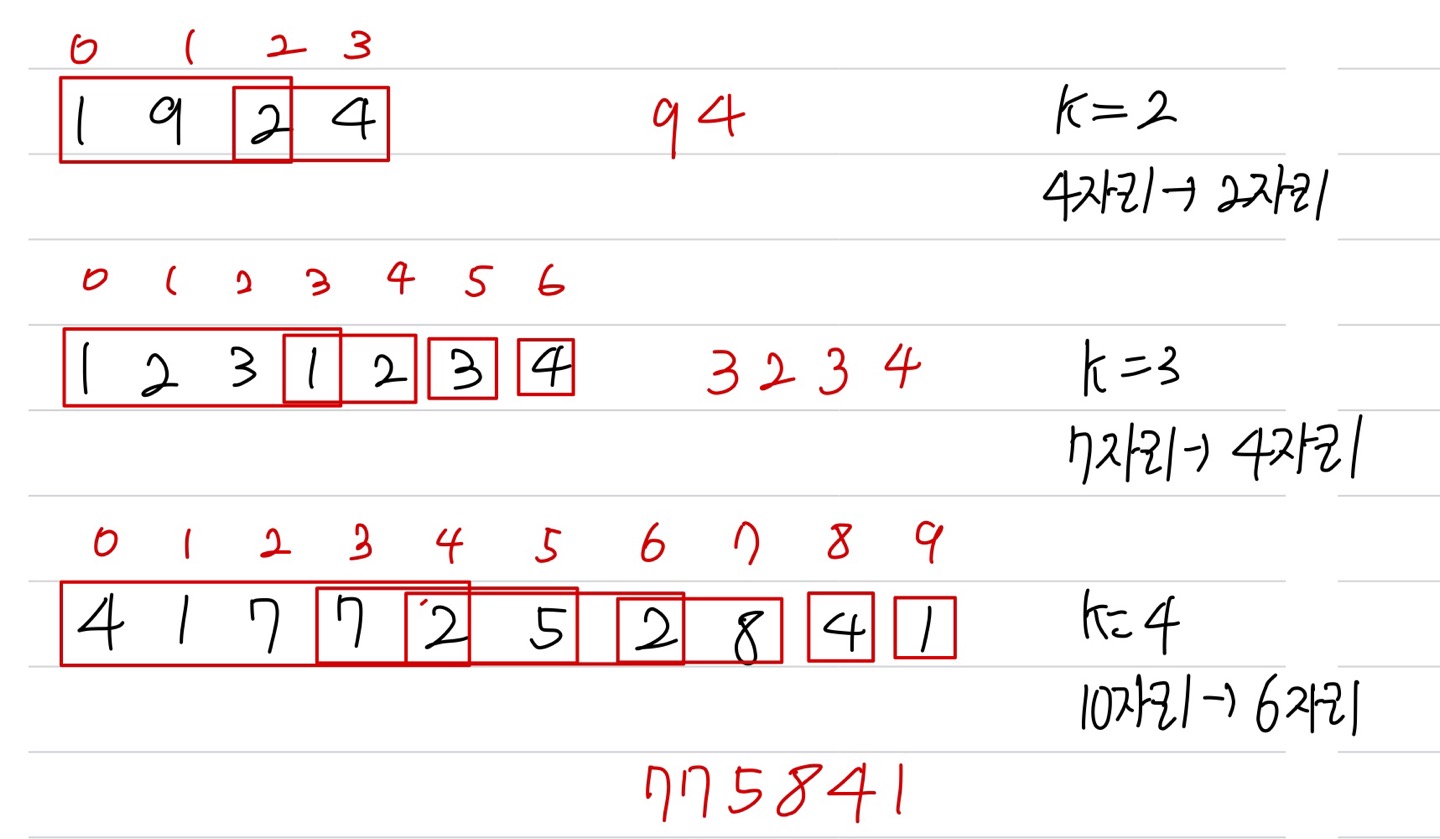 0 1 2 3
1 9 2 4 94 K=2
4자리→ 2자리
0 1 2 3 4 5 6
1 2 3 1 2 3 4 3234 K=3
7자리→ 4자리
0 1 2 3 4 5 6 7 8 9
4 1 7 7 2 5 2 8 4 1 K=4
10자리→ 6자리
775841